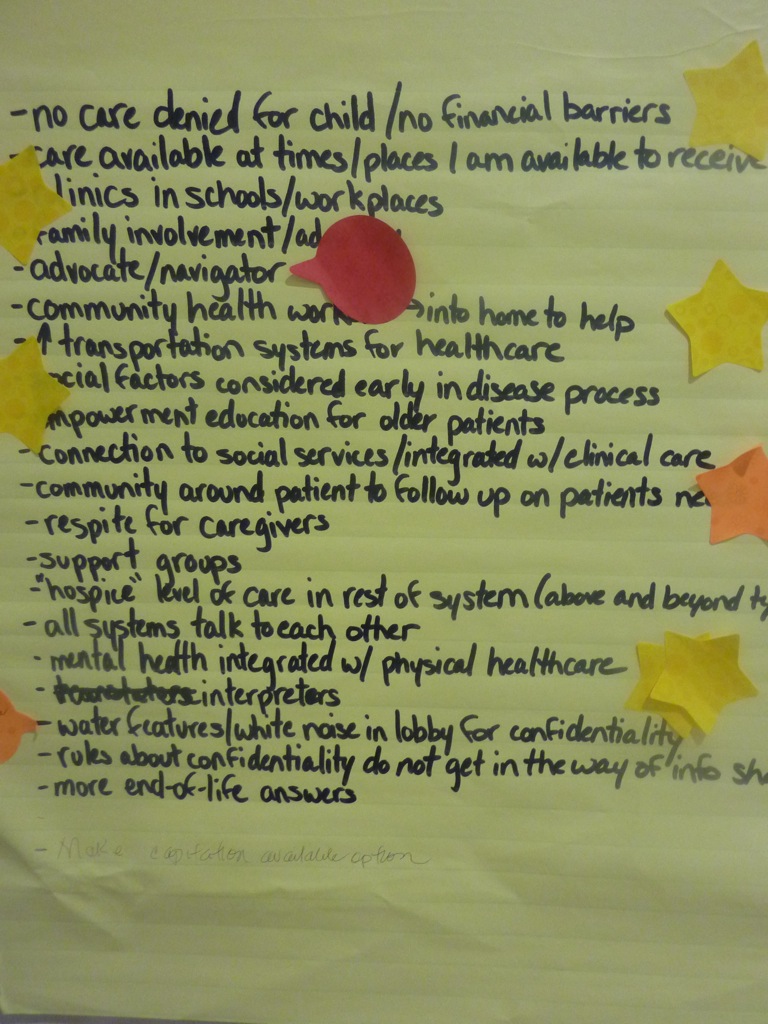 - no care denied for child / no financial barriers
care available at times/places I am available to receive
clinics in schools/workplaces
family involvement/ad
- advocate/navigator
- community health work → into home to help
- ↑ transportation systems for healthcare
social factors considered early in disease process
empowerment education for older patients
- connection to social services/integrated w/ clinical care
- community around patient to follow up on patients ne
- respite for caregivers
- support groups
- "hospice" level of care in rest of system (above and beyond ty
- all systems talk to each other
- mental health integrated w/ physical healthcare
- interpreters
- water features/white noise in lobby for confidentiality
- rules about confidentiality do not get in the way of info sha
- more end-of-life answers
- Make capitation available option